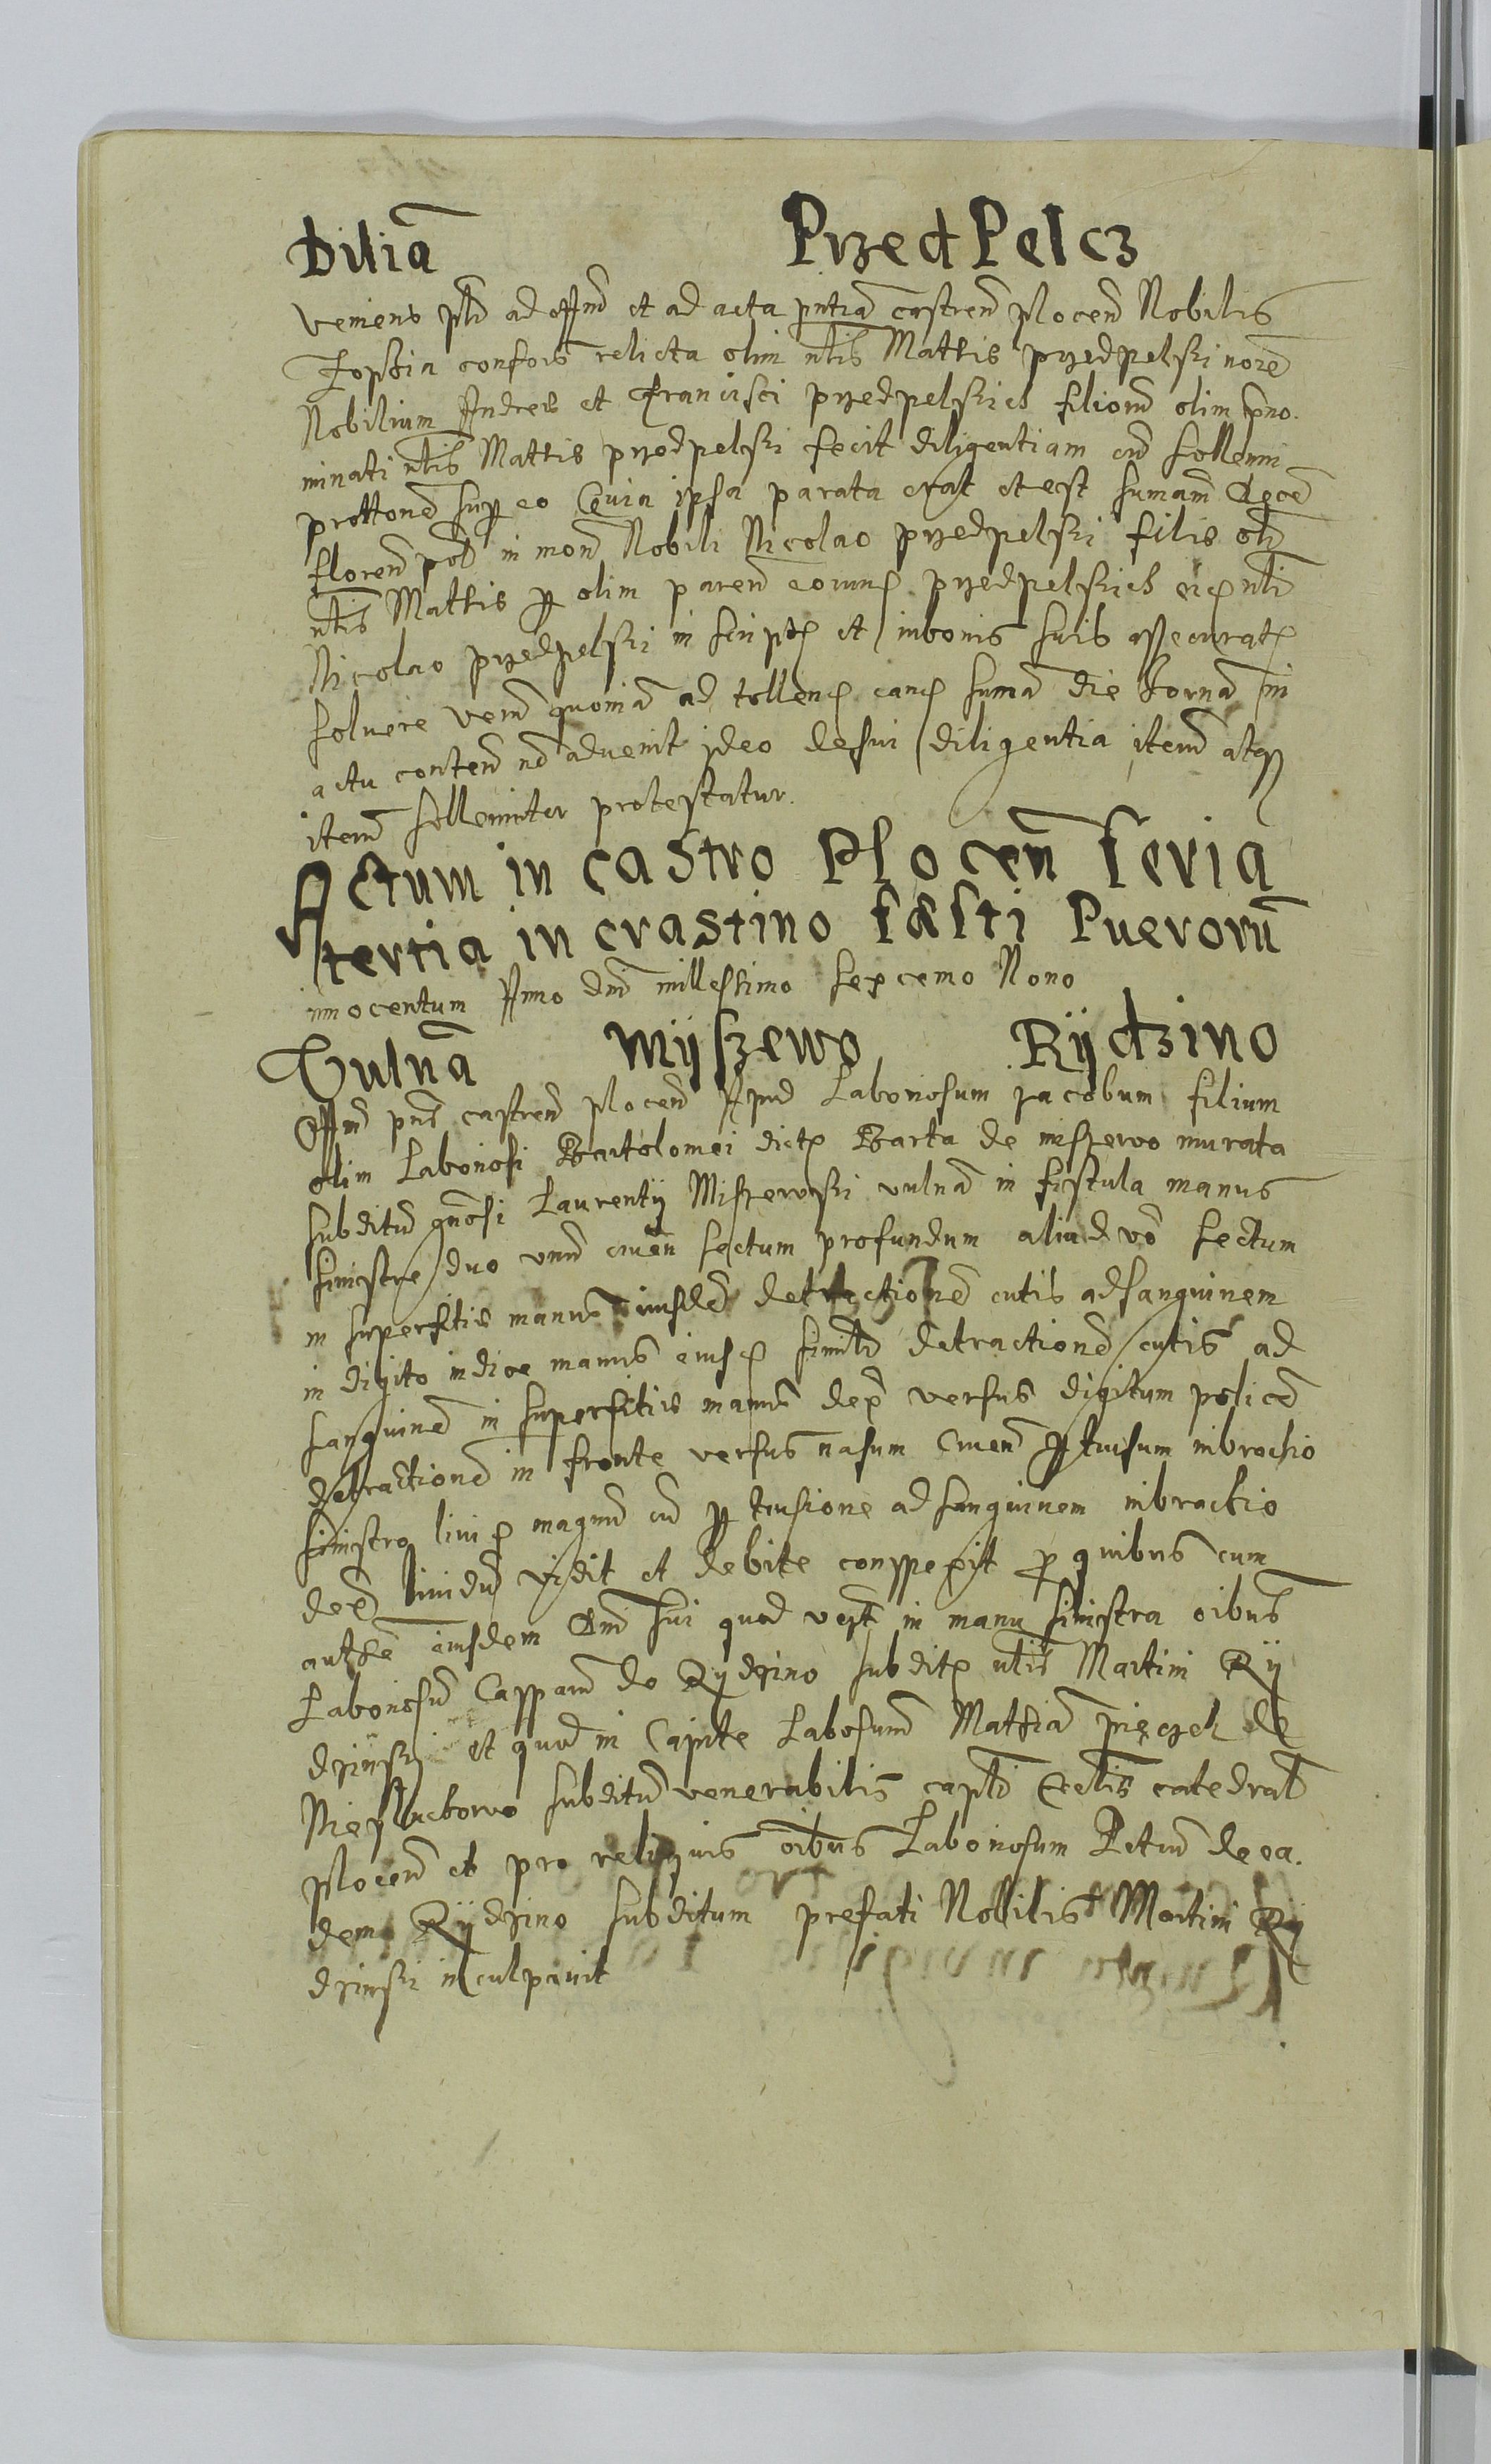 Diliã Przed Pelcz
Veniens pltr ad offm̃ et ad acta pntia castreñ ploceñ Nobilis
Zophia consors relicta olim nblis Mathis przedpelski noie
Nobilium Andreis et Francisci przedpelskich filiorũ olim pno.
minati nblis Mathis przedpelski fecit diligentiam cũ sollenni
prottoñe sup eo Quia ipsa parata erat et est sumam̃ decẽ
floreñ pol in moñ Nobili Nicolao przedpelski filio oli
nblis Mathis p olim pareñ eorum przedpelskich nbli
Nicolao przedpelski in script et in bonis suis assecurat
soluere verũ quoniã ad tollen eand sumã die hornã in
actu conteñ nõ aduenit ideo de sui diligentia iterũ atq
iterũ sollenniter protestatur.
Actum in castro Ploceñ feria
tertia in crastino fæsti Puerorũ
innocentum Anno dni millessimo sexcemo Nono
Vulnã Mÿszewo Rÿdzino
Offm̃ pns castreñ ploceñ Apud Laboriosum Jacobum filium
olim Laboriosi Bartolomei dict Barta de miszewo murata
subditũ gnosi Laurentÿ Miszewski vulnã in fistula manus
sinistre duo vnũ crueñ sectum profundum aliud vo sectum
in superfitie manus eiusdẽ detractionẽ cutis ad sanguinem
in digito indice manus eiusd simil detractionẽ cutis ad
sanguinẽ in superfitie manus dex versus digitum policẽ
detractionẽ in fronte versus nasum crueñ p tusum in brachio
sinistro liuid magnũ cũ p tusione ad sanguinem in brachio
dex liuidũ vidit et debite conspexit p quibus cum
authẽ eiusdem sui quod vest in manu sinistra oibus
Laboriosũ Casparũ de Rydzino subdit nblis Martini Rÿ
dzinski et quod in Capite Labosum Mathiã de
Niesluchowo subditũ venerabilis captli Ecclis catedral
ploceñ et pro reliquis oibus Laboriosum Petrũ de ea.
dem Rÿdzino subditum prefati Nobilis Martini Rÿ
dzinski inculpauit